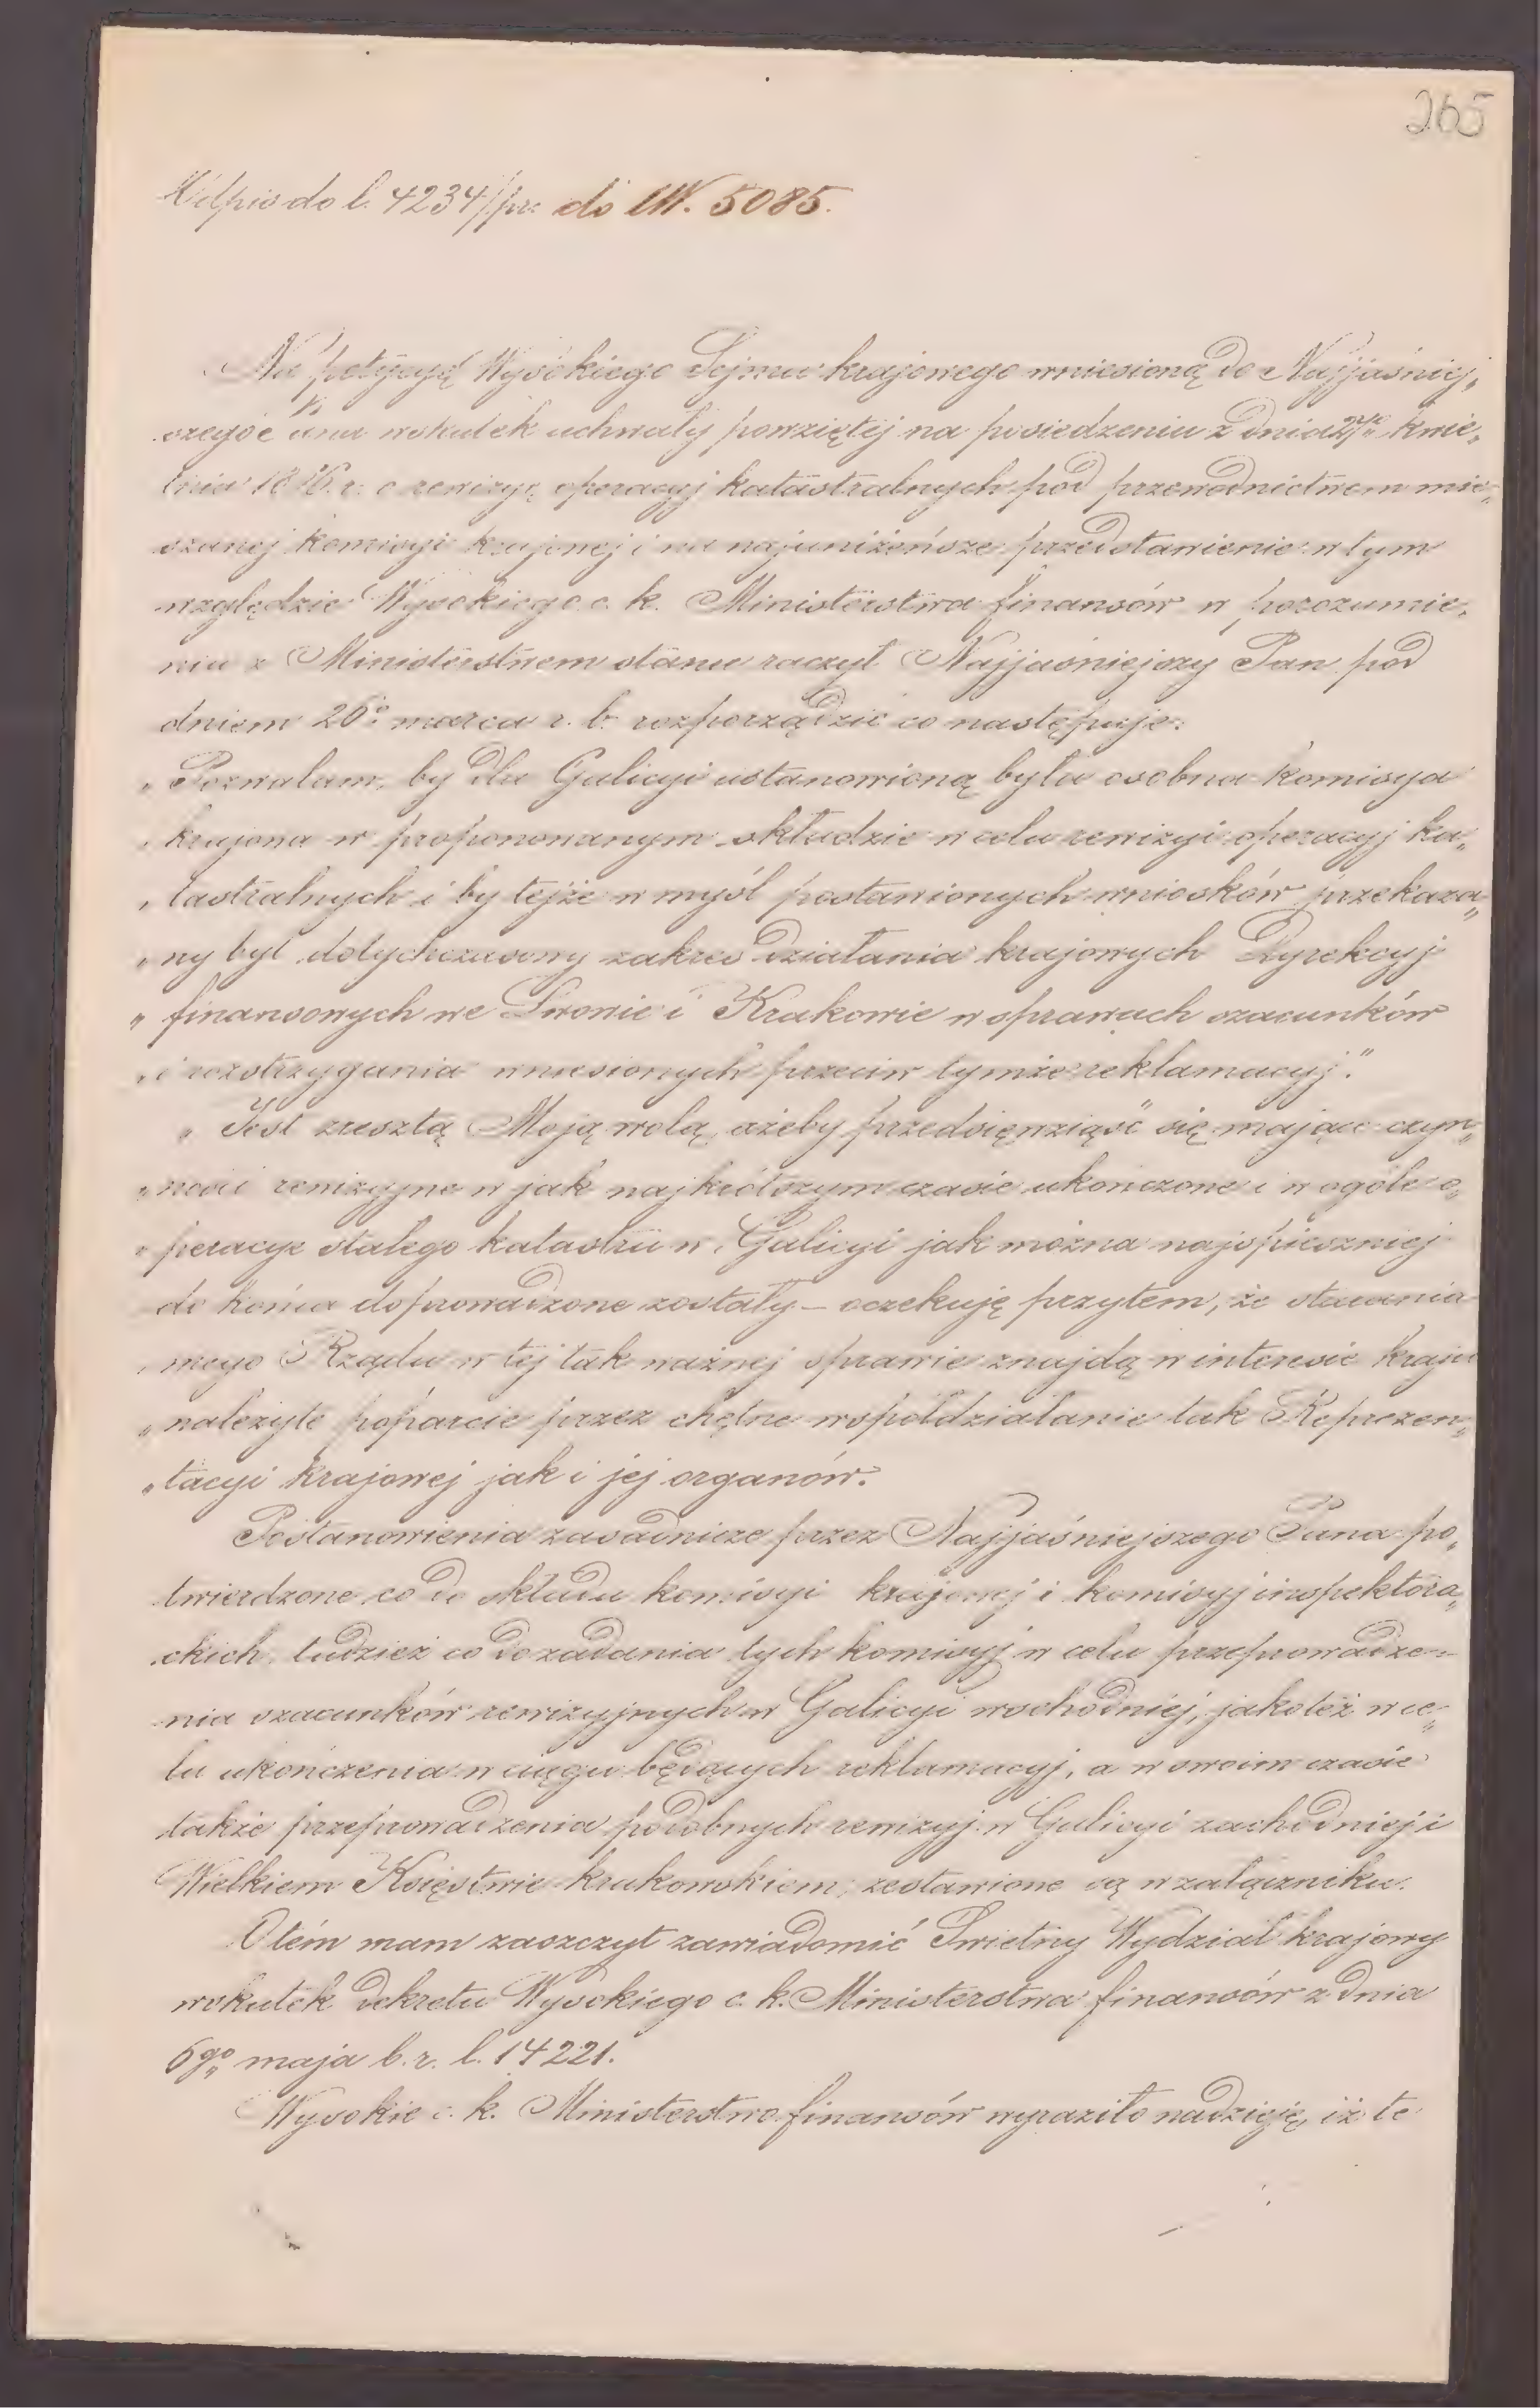 265
Odpis do l. 4234/pr: do LW. 5085.
Na petycyę Wysokiego Sejmu krajowego wniesioną do Najjaśniej„
szego Pana wskutek uchwały powziętej na posiedzeniu z dnia kwie„
tnia r. o rewizyę operacyj katastralnych pod przewodnictwem mie„
szanej komisyi krajowej i na najuniżeńsze przedstawienie w tym
względzie Wysokiego c. k. Ministerstwa finansów w porozumie„
niu z Ministerstwem stanu raczył Najjaśniejszy Pan pod
dniem 26o marca r. b. rozporządzić co następuje:
„Pozwalam, by dla Galicyi ustanowioną była osobna komisya
„krajowa w proponowanym składzie w celu rewizyi operacyj ka„
„tastralnych i by tejże w myśl postawionych wniosków przekaza„
„ny był dotychczasowy zakres działania krajowych Dyrekcyj
„finansowych we Lwowie i Krakowie w sprawach szacunków
„i rozstrzygania wniesionych przeciw tymże reklamacyj."
„Jest zresztą Moją wolą, ażeby przedsięwziąść się mające czyn„
„ności rewizyjne w jak najkrótszym czasie ukończone i w ogóle o„
„peracye stałego katastru w Galicyi jak można najspieszniej
do końca doprowadzone zostały – oczekuję przytem, że starania
„mego Rządu w tej tak ważnej sprawie znajdą w interesie kraju
„należyte poparcie przez chętne współdziałanie tak Reprezen„
„tacyi krajowej jak i jej organów.
Postanowienia zasadnicze przez Najjaśniejszego Pana po„
twierdzone co do składu komisyi krajowej i komisyj inspektora„
ckich, tudzież co do zadania tych komisyj w celu przeprowadze=
nia szacunków rewizyjnych w Galicyi wschodniej, jakoteż w ce„
lu ukończenia w ciągu będących reklamacyj, a w swoim czasie
także przeprowadzenia podobnych rewizyj w Galicyi zachodniej i
Wielkiem Księstwie krakowskiem, zestawione są w załączniku.
O tém mam zaszczyt zawiadomić Świetny Wydział krajowy
wskutek dekretu Wysokiego c. k. Ministerstwa finansów z dnia
6go maja b. r. l. 14221.
Wysokie c. k. Ministerstwo finansów wyraziło nadzieję, iż te